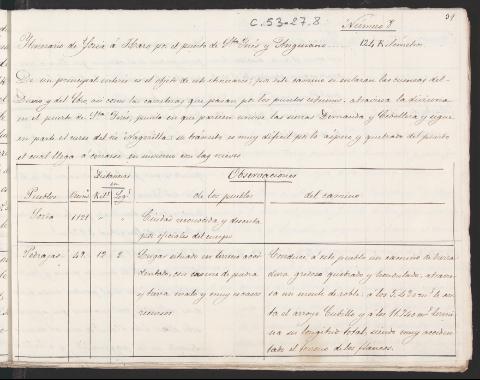 C.53-27.8
Número 8
Itinerario de Soria á Haro por el puerto de Sta Inés y Anguiano 124 Kilómetros
De un principal interés es el objeto de este itinerario; por este camino se enlazan las cuencas del
Duero y del Ebro asi como las carreteras que pasan por los puntos estremos, atraviesa la divisoria
en el puerto de Sta Inés, punto en que parecen unirse las sierras Demanda y Cebollera y sigue
en parte el curso del rio Nagerilla: su tránsito es muy dificil por lo áspero y quebrado del puerto
el cual llega á cerrarse en invierno con las nieves.
Distancias Observaciones
en
Pueblos Kils de los pueblos del camino
Soria 1121 " " Ciudad reconocida y descrita
por oficiales del cuerpo
Pedrajas 49 12 2 Lugar situado en terreno acci
dentado, con casas de piedra
y tierra malas y muy escasos
recursos
Conduce á este pueblo un camino de herra
dura gredoso quebrado y hondonado; atravie
sa un monte de roble: á los 5,430 ms le cor
ta el arroyo Cubillo y á los 11.740 ms termi
na su longitud total, siendo muy acciden
tado el terreno de los flancos.